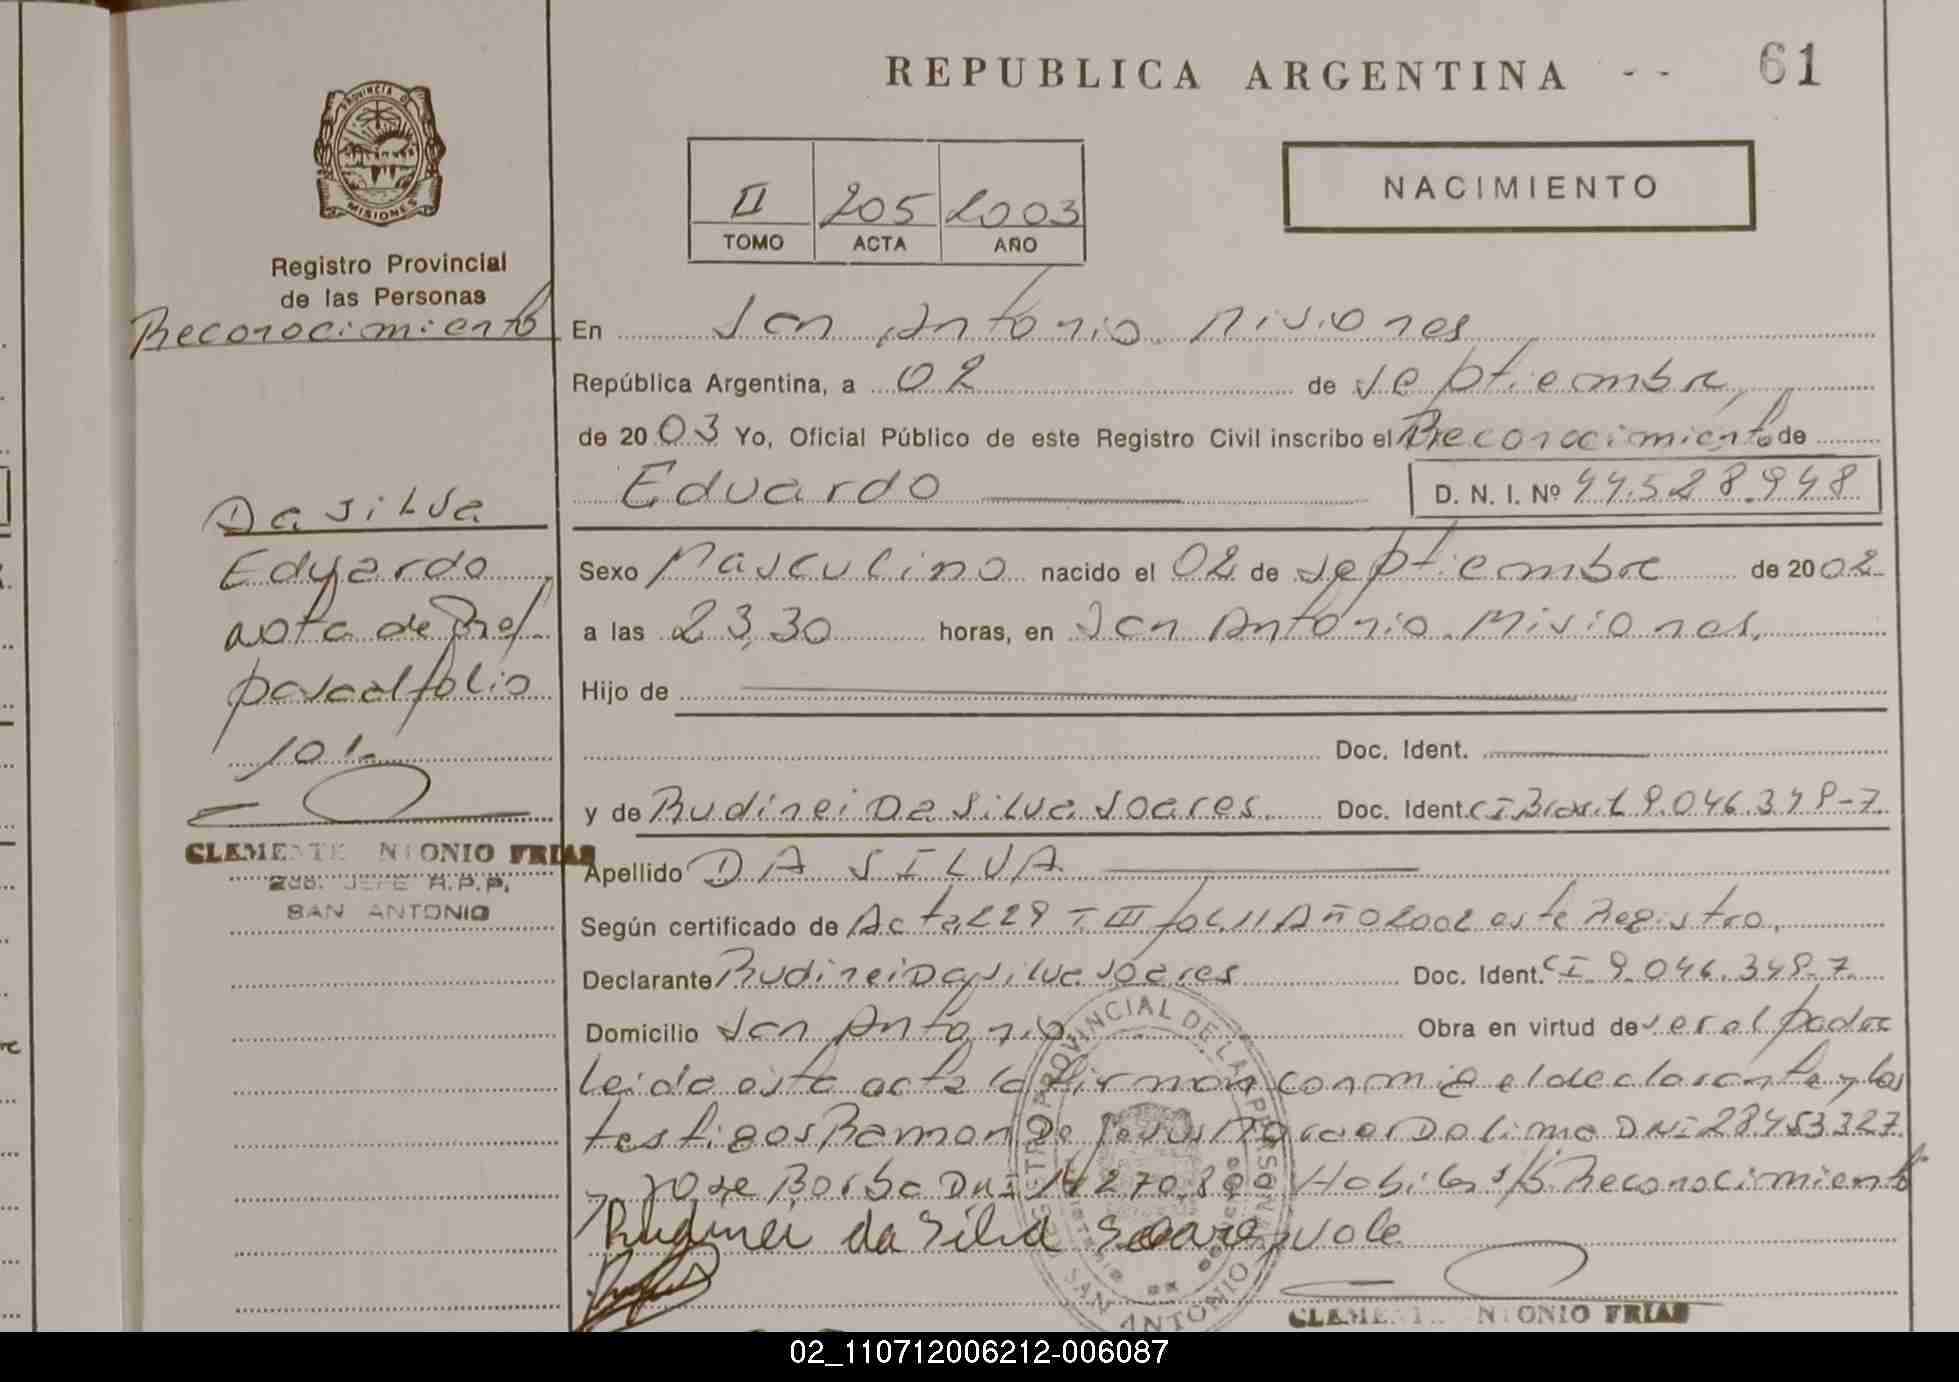 REPUBLICA ARGENTINA -- 61
PROVINCIA D
MISIONES
Registro Provincial
de las Personas
Reconocimiento
II 205 2003
TOMO ACTA AÑO
NACIMIENTO
En San Antonio Misiones
República Argentina, a 02 de septiembre
de 2003 Yo, Oficial Público de este Registro Civil inscribo el Reconocimiento de
Eduardo D. N. I. Nº 44.528.948
Sexo Masculino nacido el 02 de septiembre de 2002
a las 23,30 horas, en San Antonio Misiones,
Hijo de
Doc. Ident.
y de Rudinei Da Silva Soares. Doc. Ident. CI Brasil 9.046.349-7
Apellido DA SILVA
Según certificado de Acta 229 T III fol 11 Año 2002 este Registro,
Declarante Rudinei Da Silva Soares Doc. Ident. CI 9.046.349-7
Domicilio San Antonio Obra en virtud de ser el padre
Leida esta acta la firman conmigo el declarante y los
testigos Ramon De Jesus Dolima DNI 28453327
y Jose Borba DNI 14270.800 Habiles s/b Reconocimiento
Rudinei da Silva Soares vale
Da Silva
Eduardo
nota de Ref.
pasa al folio
101
CLEMENTE NTONIO FRIAS
2do. JEFE R.P.P.
SAN ANTONIO
REGISTRO PROVINCIAL DE LAS PERSONAS
SAN ANTONIO
CLEME NTONIO FRIAS
02_110712006212-006087